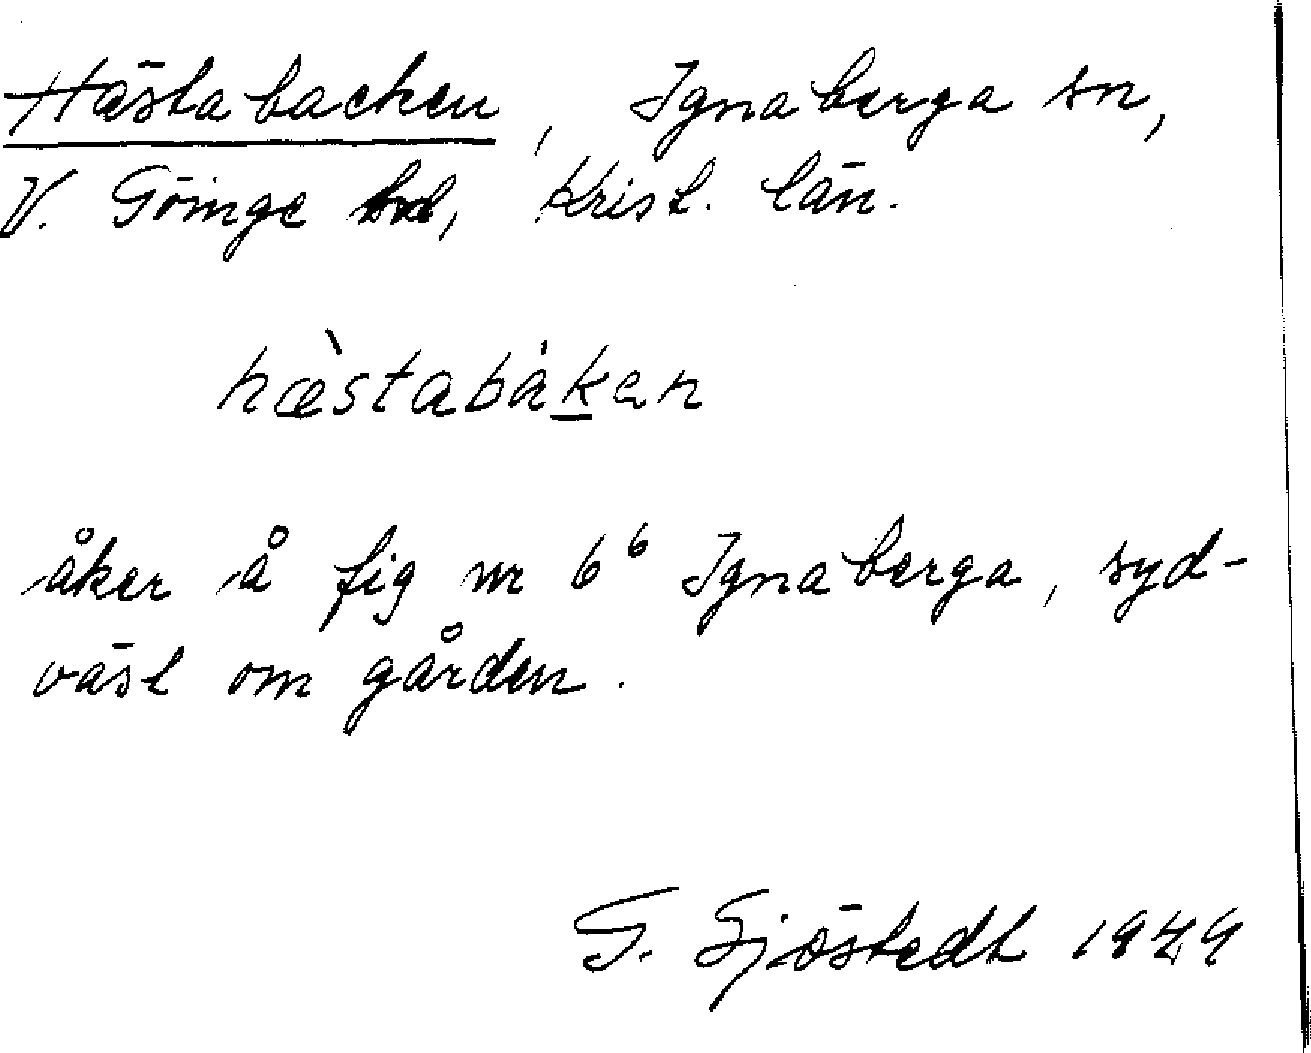 Hästabacken, Ignaberga sn,
V. Göinge hd, Krist. län.
hæ̀stabàk̲en
åker å fig nr 6⁶ Ignaberga, syd-
väst om gården.
G. Sjöstedt 1949